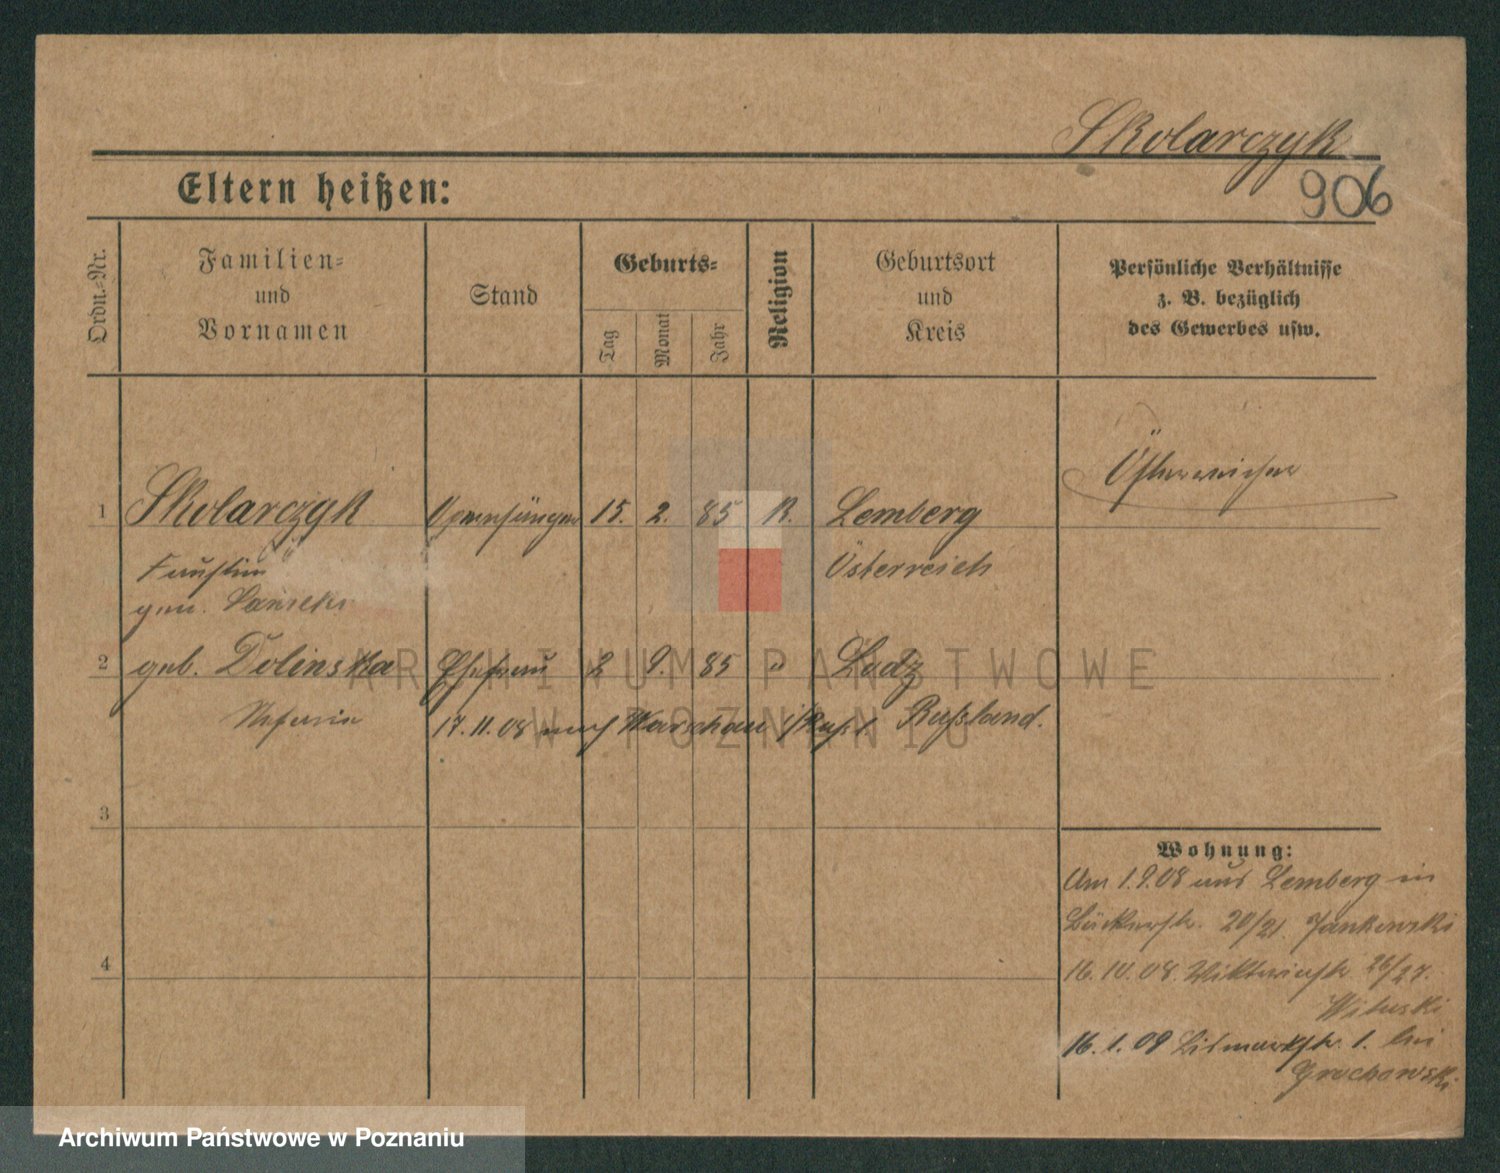 Skolarczyk
906
Eltern heißen:
Ordn.-Nr.
Familien-
und
Vornamen
Stand
Geburts-
Tag
Monat
Jahr
Religion
Geburtsort
und
Kreis
Persönliche Verhältnisse
z. B. bezüglich
des Gewerbes usw.
1 Skolarczyk Opernsänger 15. 2. 85 K. Lemberg Österreicher
Faustin Österreich
gen.
2 geb. Dolinska Ehefrau 2 9. 85 " Lodz
17.11.08 nach Warschau i/Rußl. Rußland.
3
4
Wohnung:
Am 1.9.08 aus Lemberg in
Bäckerstr. 20/21. Jankowski
16.10.08. Viktoriastr 26/27.
Wituski
16.1.09 Bismarckstr. 1. bei
Grochowski
ARCHIWUM PAŃSTWOWE
W POZNANIU
Archiwum Państwowe w Poznaniu